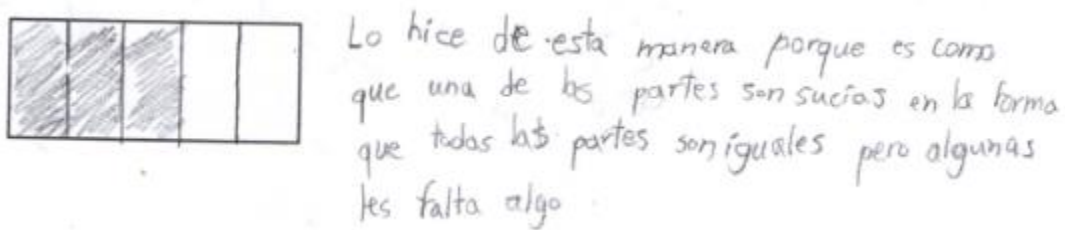 Lo hice de esta manera porque es como
que una de las partes son sucias en la forma
que todas las partes son iguales pero algunas
les falta algo